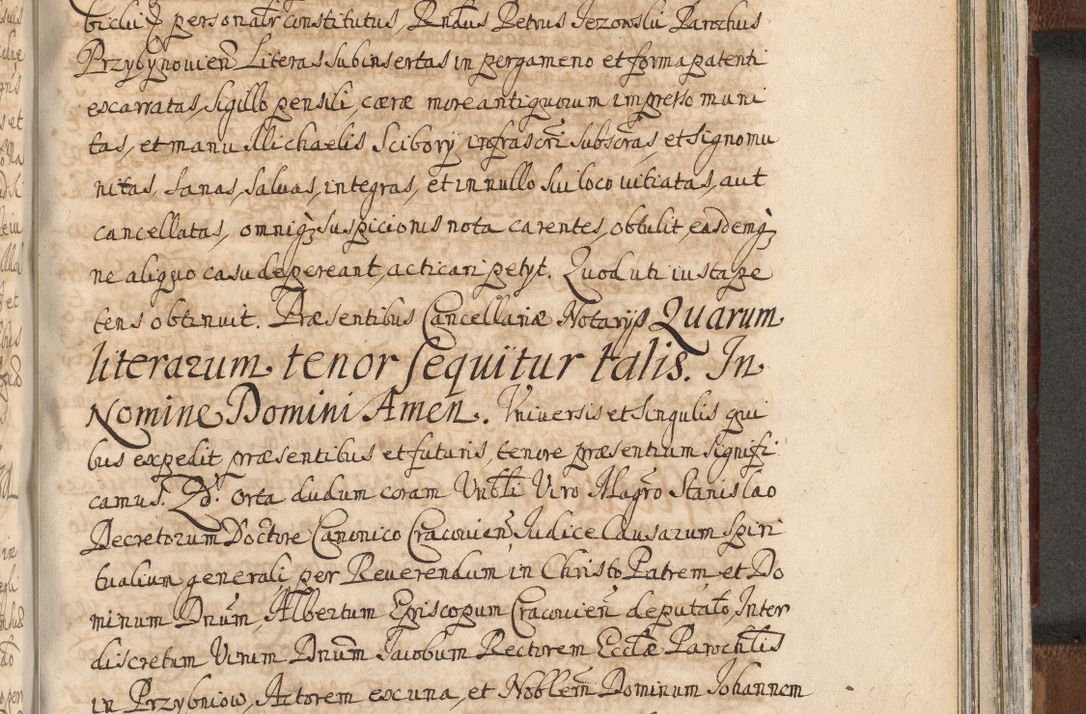 biclui personalr constitutus, Rndus Petrus Jezowski Parochus
Przybynovien̄ Literas subinsertas in pergameno et forma patenti
excarratas, sigillo pensili, cæræ more antiquorum impresso muni
tas, et manu Michaelis Scibory infrascri subscras et signo mu
nitas, sanas, salvas, integras, et in nullo sui loco vitiatas, aut
cancellatas, omniq; suspicionis nota carentes, obtulit, easdemq;
ne aliquo casu depereant, acticari petyt. Quod uti iusta pe
tens obtinuit. Præsentibus Cancellariæ Notarijs Quarum
literarum tenor sequitur talis. In
Nomine Domini Amen. Universis et singulis qui
bus expedit præsentibus et futuris, tenore præsentium signifi
camus. Qd. orta dudum coram Vnbli Viro Magro Stanislao
Decretorum Doctore Canonico Cracovien̄, Judice Causarum Spiri
tualium generali per Reverendum in Christo Patrem et Do
minum Dnum, Albertum Episcopum Cracovien̄ deputato, Inter
discretum Virum Dnum Jacobum Rectorem Ecclæ Parochlis
in Przybniow, Actorem ex una, et Noblem Dominum Johannem